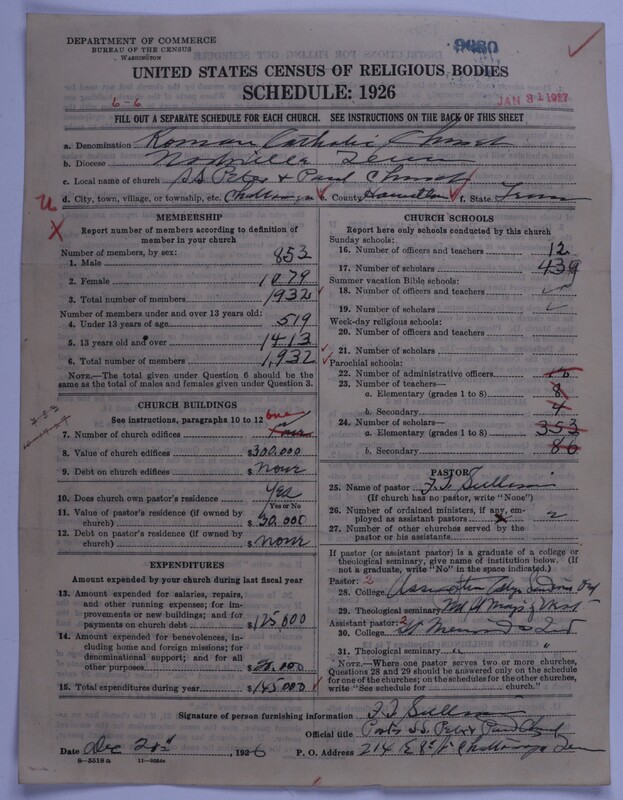 DEPARTMENT OF COMMERCE
BUREAU OF THE CENSUS
WASHINGTON
9660
UNITED STATES CENSUS OF RELIGIOUS BODIES
SCHEDULE: 1926
6-6
JAN 31 1927
FILL OUT A SEPARATE SCHEDULE FOR EACH CHURCH. SEE INSTRUCTIONS ON THE BACK OF THIS SHEET
a. Denomination Roman Catholic Church
b. Diocese Nashville Tenn
c. Local name of church S.S. Peter & Paul Church
d. City, town, village, or township, etc. e. County Hamilton f. State Tenn
MEMBERSHIP
Report number of members according to definition of
member in your church
Number of members, by sex:
1. Male 853
2. Female 1079
3. Total number of members 1932
Number of members under and over 13 years old:
4. Under 13 years of age 519
5. 13 years old and over 1413
6. Total number of members 1,932
NOTE.—The total given under Question 6 should be
same as the total of males and females given under Question 3.
CHURCH BUILDINGS
See instructions, paragraphs 10 to 12
one
7. Number of church edifices
8. Value of church edifices $300.000
9. Debt on church edifices $None
10. Does church own pastor's residence Yes
Yes or No
11. Value of pastor's residence (if owned by
church) $30.000
12. Debt on pastor's residence (if owned by
church) $None
EXPENDITURES
Amount expended by your church during last fiscal year
13. Amount expended for salaries, repairs,
and other running expense; for im-
provements or new buildings; and for
payments on church debt $125000
14. Amount expended for benevolences, in-
cluding home and foreign missions; for
denominational support; and for all
other purposes $20.000
15. Total expenditures during year $145000
CHURCH SCHOOLS
Report here only schools conducted by this church
Sunday schools:
16. Number of officers and teachers 12
17. Number of scholars 439
Summer vacation Bible schools:
18. Number of officers and teachers
19. Number of scholars
Week-day religious schools:
20. Number of officers and teachers
21. Number of scholars
Parochial schools:
22. Number of administrative officers
23. Number of teachers—
a. Elementary (grades 1 to 8) 8
b. Secondary 4
24. Number of scholars—
a. Elementary (grades 1 to 8) 353
b. Secondary 86
PASTOR
25. Name of pastor F.T. Sullivan
(If church has no pastor, write "None")
26. Number of ordained ministers, if any, em-
ployed as assistant pastors 2
27. Number of other churches served by the
pastor or his assistants
If pastor (or assistant pastor) is a graduate of a college or
theological seminary, give name of institution below. (If
not a graduate, write "No" in the space indicated.)
Pastor: 2
28. College
29. Theological seminary
Assistant pastor: 2
30. College
31. Theological seminary
NOTE.—Where one pastor serves two or more churches,
Questions 28 and 29 should be answered only on the schedule
for one of the churches; on the schedules for the other churches,
write "See schedule for church."
Signature of person furnishing information F.T. Sullivan
Official title Pastor S.S. Peter & Paul Church
Date Dec 1926 P. O. Address 214 E 8th Chattanooga Tenn
8—5518 a